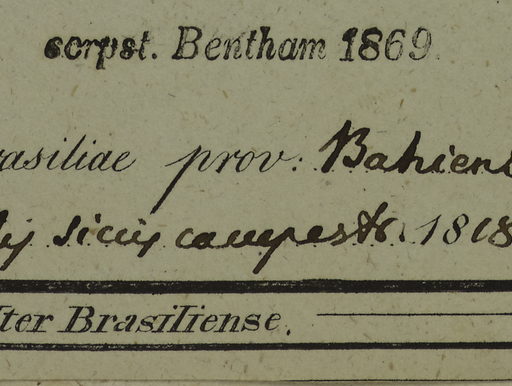 scrpst. Bentham 1869.
rasiliae prov: Bahiens
siccis campestr. 1818
Iter Brasiliense.